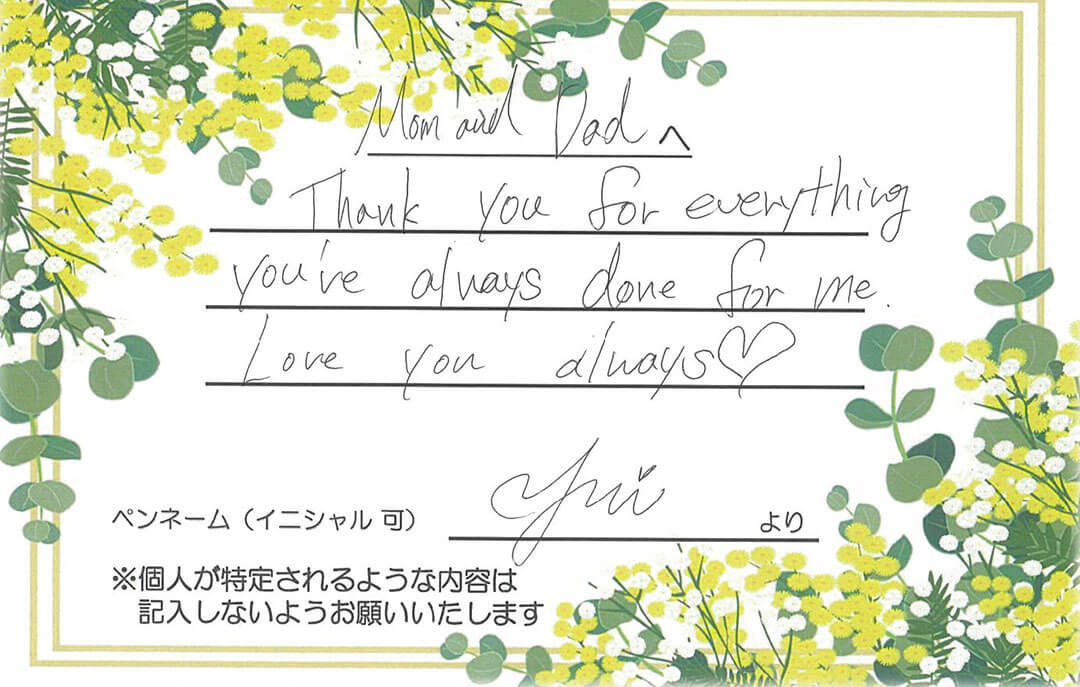 Mom and Dad へ
Thank you for everything
you've always done for me.
Love you always♡
ペンネーム（イニシャル 可） Yui より
※個人が特定されるような内容は
記入しないようお願いいたします